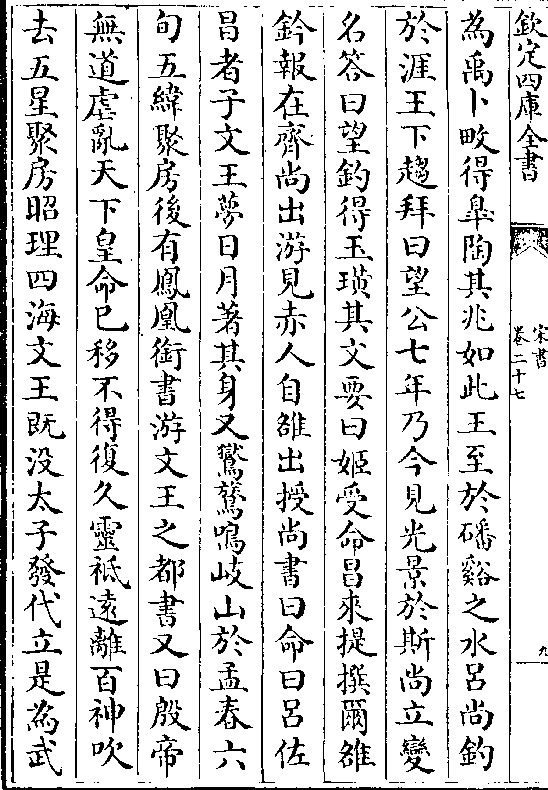 欽定四庫全書
宋書
卷二十七
九
為禹卜畋得臯陶其兆如此王至於磻谿之水呂尚釣
於涯王下趨拜曰望公七年乃今見光景於斯尚立變
名答曰望釣得玉璜其文要曰姬受命昌來提撰爾雒
鈐報在齊尚出游見赤人自雒出授尚書曰命曰呂佐
昌者子文王夢日月著其身又鸑鷟鳴岐山於孟春六
旬五緯聚房後有鳳凰銜書游文王之都書又曰殷帝
無道虐亂天下皇命已移不得復久靈祗遠離百神吹
去五星聚房昭理四海文王既没太子發代立是為武